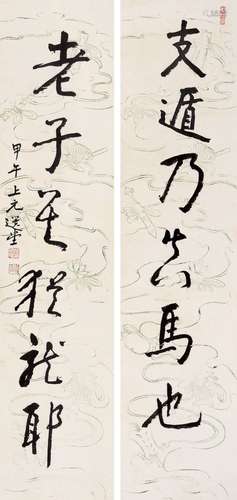 支遁乃真馬也
老子其猶龍耶
甲午上元選堂